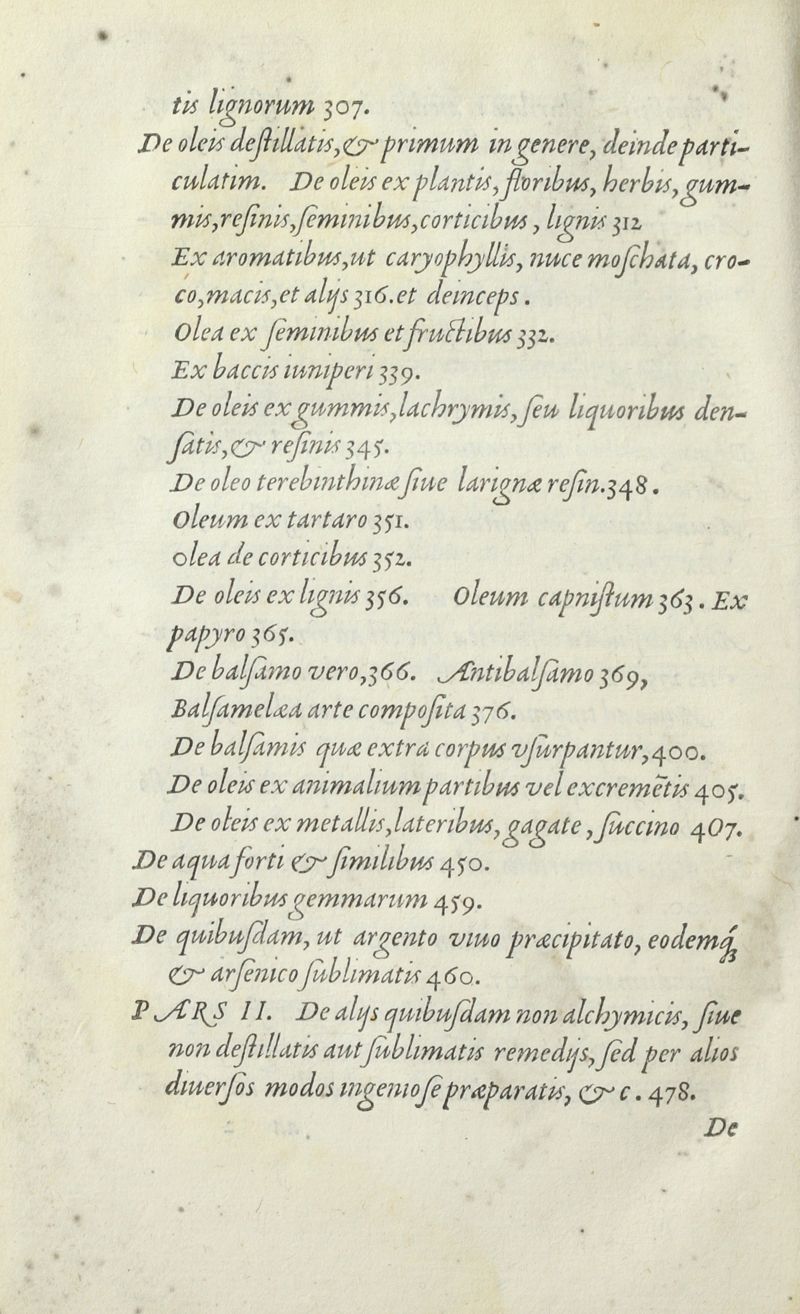 tis lignorum 307.
De oleis deſtillatis,& primum in genere, deinde parti-
culatim. De oleis ex plantis, floribus, herbis, gum-
mis,reſinis,ſeminibus,corticibus, lignis 312
Ex aromatibus,ut caryophyllis, nuce moſchata, cro-
co,macis,et alijs 316.et deinceps.
Olea ex ſeminibus et fructibus 332.
Ex baccis iuniperi 339.
De oleis ex gummis,lachrymis, ſeu liquoribus den-
ſatis,& reſinis 345.
De oleo terebinthinæ ſiue larignæ reſin.348.
Oleum ex tartaro 351.
olea de corticibus 352.
De oleis ex lignis 356. Oleum capniſtum 363. Ex
papyro 365.
De balſamo vero,366. Antibalſamo 369,
Balſamelæa arte compoſita 376.
De balſamis quæ extra corpus vſurpantur,400.
De oleis ex animalium partibus vel excremẽtis 405.
De oleis ex metallis,lateribus, gagate, ſuccino 407.
De aqua forti & ſimilibus 450.
De liquoribus gemmarum 459.
De quibuſdam, ut argento viuo præcipitato, eodemq́ꝫ
& arſenico ſublimatis 460.
PARS II. De alijs quibuſdam non alchymicis, ſiue
non deſtillatis aut ſublimatis remedijs, ſed per alios
diuerſos modos ingenioſe præparatis, & c. 478.
De